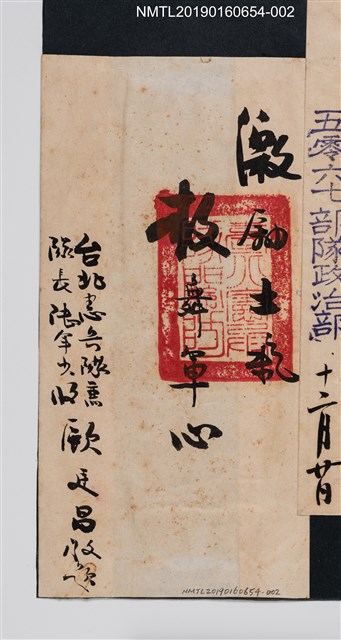 NMTL20190160654-002
五零六七部隊政治部
十二月廿日
激勵士氣
鼓舞軍心
台北憲兵隊兼
隊長陸軍少將
歐廷昌敬題
NMTL20190160654-002